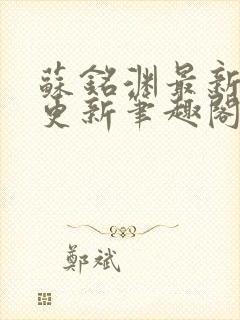 蘇銘淵最新
更新筆趣閣
鄭斌